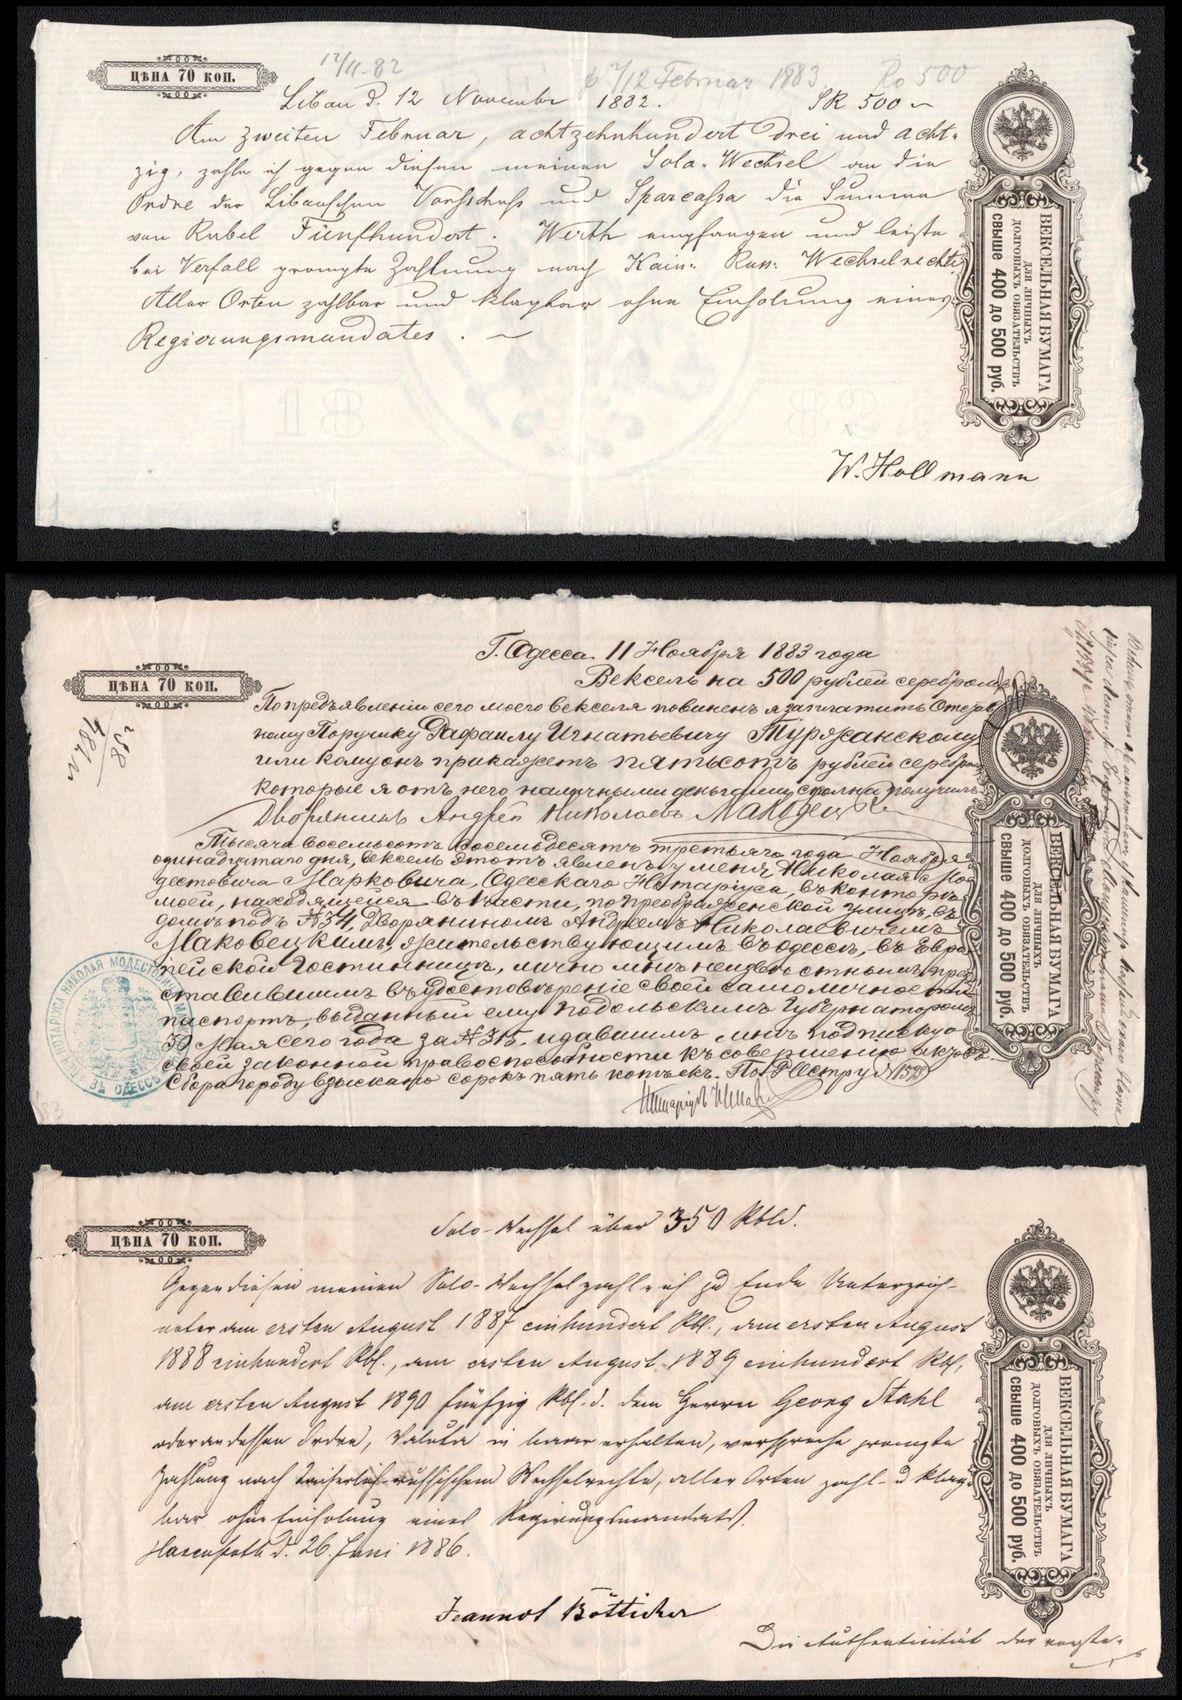 ЦѢНА 70 КОП.
12/11.82
2/12 Februar 1883 Ro 500
Libau d. 12 November 1882. SR 500
Am zweiten Februar, achtzehnhundert drei und acht-
zig, zahle ich gegen diesen meinen Sola-Wechsel an die
Ordre der Libauschen Vorschuss und Sparcassa die Summe
von Rubel Fünfhundert. Werth empfangen und leiste
bei Verfall prompte Zahlung nach Kais: Russ: Wechselrechte
Aller Orten zahlbar und klagbar ohne Einholung eines
Regierungsmandates.
W. Hollmann
ВЕКСЕЛЬНАЯ БУМАГА
ДЛЯ ЛИЧНЫХЪ
ДОЛГОВЫХЪ ОБЯЗАТЕЛЬСТВЪ
СВЫШЕ 400 ДО 500 РУБ.
ЦѢНА 70 КОП.
Г. Одесса. 11 Ноября 1883 года
Вексель на 500 рублей серебромъ
По предъявленіи сего моего векселя повиненъ я заплатить Отстав
ному Поручику Рафаилу Игнатьевичу Туржанскому
или кому онъ прикажетъ пятьсотъ рублей серебр
которые я отъ него наличными деньгами сполна получилъ
Дворянинъ Андрей Николаевъ
Тысяча восемьсотъ восемьдесятъ третьяго года Ноября
одинадцатаго дня, вексель этотъ явленъ у меня, Николая Мо
дестовича Марковича, Одесскаго Нотаріуса, въ конторѣ
моей, находящейся въ части, по Преображенской улицѣ, въ
домѣ подъ № 34, Дворяниномъ Андреемъ Николаевичемъ
Маковецкимъ, жительствующимъ въ Одессѣ, въ Евро
пейской Гостинницѣ, лично мнѣ неизвѣстнымъ, пред
ставившимъ въ удостовѣреніе своей самоличности
паспортъ, выданный ему Подольскимъ Губернаторомъ
30 Мая сего года за № 315, и давшимъ мнѣ подписку о
своей законной правоспособности къ совершенію актовъ
Сбора городу взыскано сорокъ пять копѣекъ. По Реестру №
Нотаріусъ
НОТАРІУСА НИКОЛАЯ МОДЕСТ
ВЪ ОДЕССѢ
ВЕКСЕЛЬНАЯ БУМАГА
ДЛЯ ЛИЧНЫХЪ
ДОЛГОВЫХЪ ОБЯЗАТЕЛЬСТВЪ
СВЫШЕ 400 ДО 500 РУБ.
ЦѢНА 70 КОП.
Solo-Wechsel über 350 Rbld.
Gegen diesen meinen Solo-Wechsel zahle ich zu Ende Unterzeich-
neter am ersten August 1887 einhundert Rbl., am ersten August
1888 einhundert Rbl., am ersten August 1889 einhundert Rbl,
am ersten August 1890 fünfzig Rbl. d. dem Herrn Georg Stahl
oder an dessen Ordre, Valuta in baar erhalten, verspreche prompte
Zahlung nach Kaiserlich russischem Wechselrechte, aller Orten zahl- u klag-
bar ohne Einholung eines Regierungsmandats.
Hasenpoth d. 26. Juni 1886.
Jeannot Bötticher
Die Authenticität der vorste-
ВЕКСЕЛЬНАЯ БУМАГА
ДЛЯ ЛИЧНЫХЪ
ДОЛГОВЫХЪ ОБЯЗАТЕЛЬСТВЪ
СВЫШЕ 400 ДО 500 РУБ.